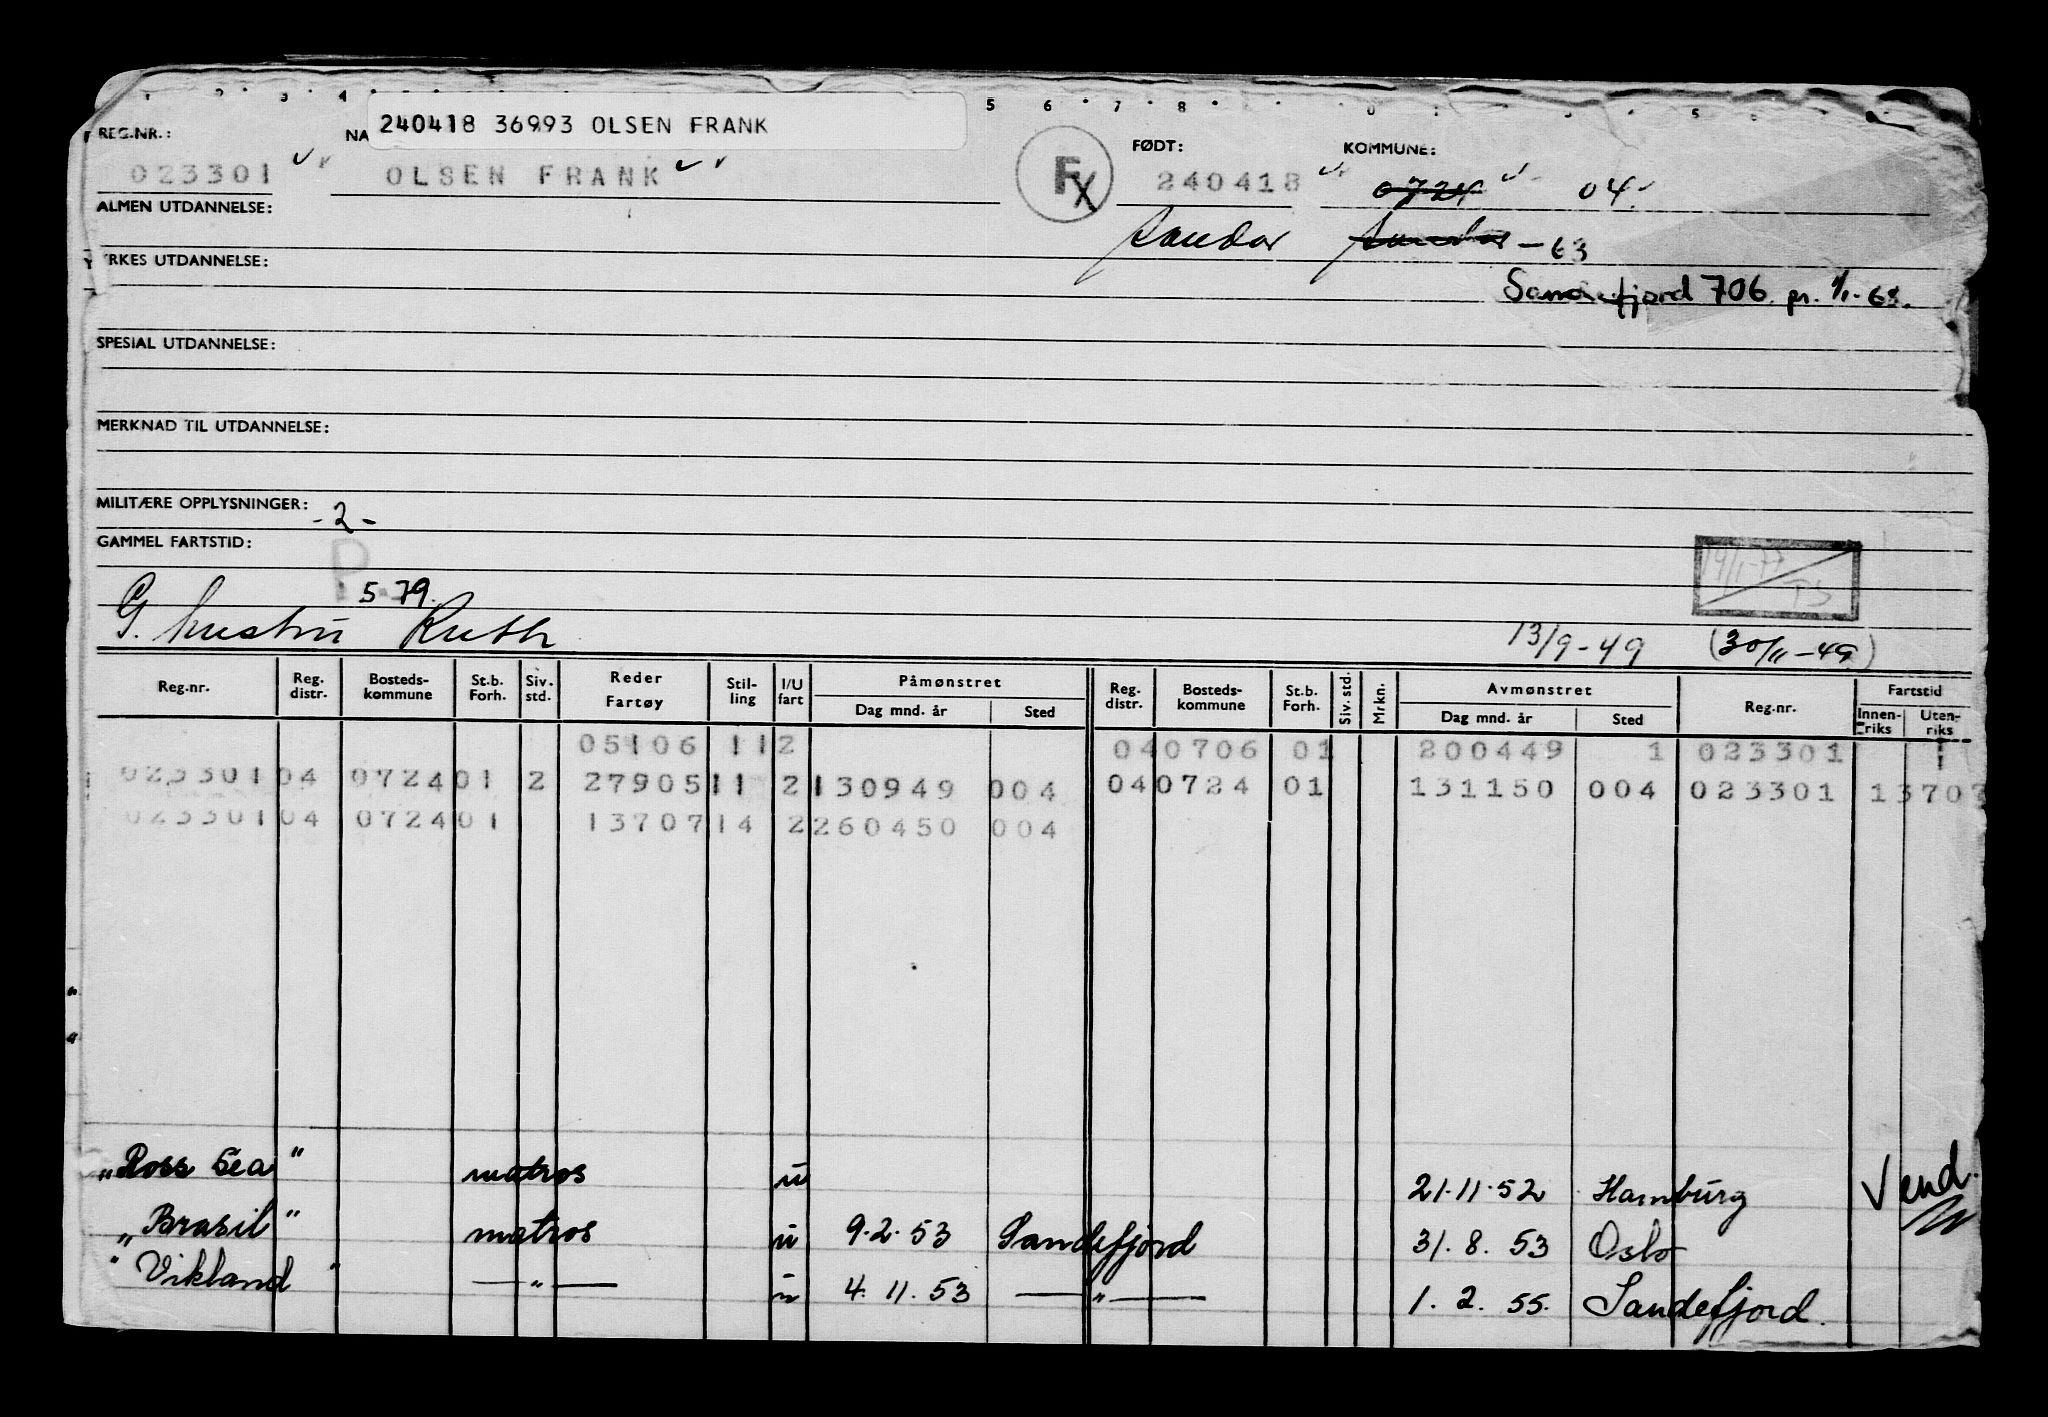 240418 36993 OLSEN FRANK
REG.NR.: NA FØDT: KOMMUNE:
023301 OLSEN FRANK F X 240418 0724 04
ALMEN UTDANNELSE: Sandar Sandar - 63
YRKES UTDANNELSE:
Sandefjord 706 pr. 1/1-68.
SPESIAL UTDANNELSE:
MERKNAD TIL UTDANNELSE:
MILITÆRE OPPLYSNINGER: -2-
GAMMEL FARTSTID:
P 5.79.
G. hustru Ruth 13/9-49 (30/11-49)
Reg.nr. Reg. distr. Bosteds-kommune St.b. Forh. Siv. std. Reder Fartøy Stil-ling I/U fart Påmønstret Dag mnd. år Sted Reg. distr. Bosteds-kommune St.b. Forh. Siv. std. Mrkn. Avmønstret Dag mnd. år Sted Reg.nr. Fartstid Innen-riks Uten-riks
05106 11 2 04 0706 01 200449 1 023301 1
023301 04 0724 01 2 27905 11 2 130949 004 04 0724 01 131150 004 023301 13707
023301 04 0724 01 13707 14 2 260450 004
"Ross Sea" matros u 21.11.52 Hamburg Vend.
"Brasil" matros u 9.2.53 Sandefjord 31.8.53 Oslo
"Vikland" — " — u 4.11.53 — " — 1.2.55. Sandefjord.